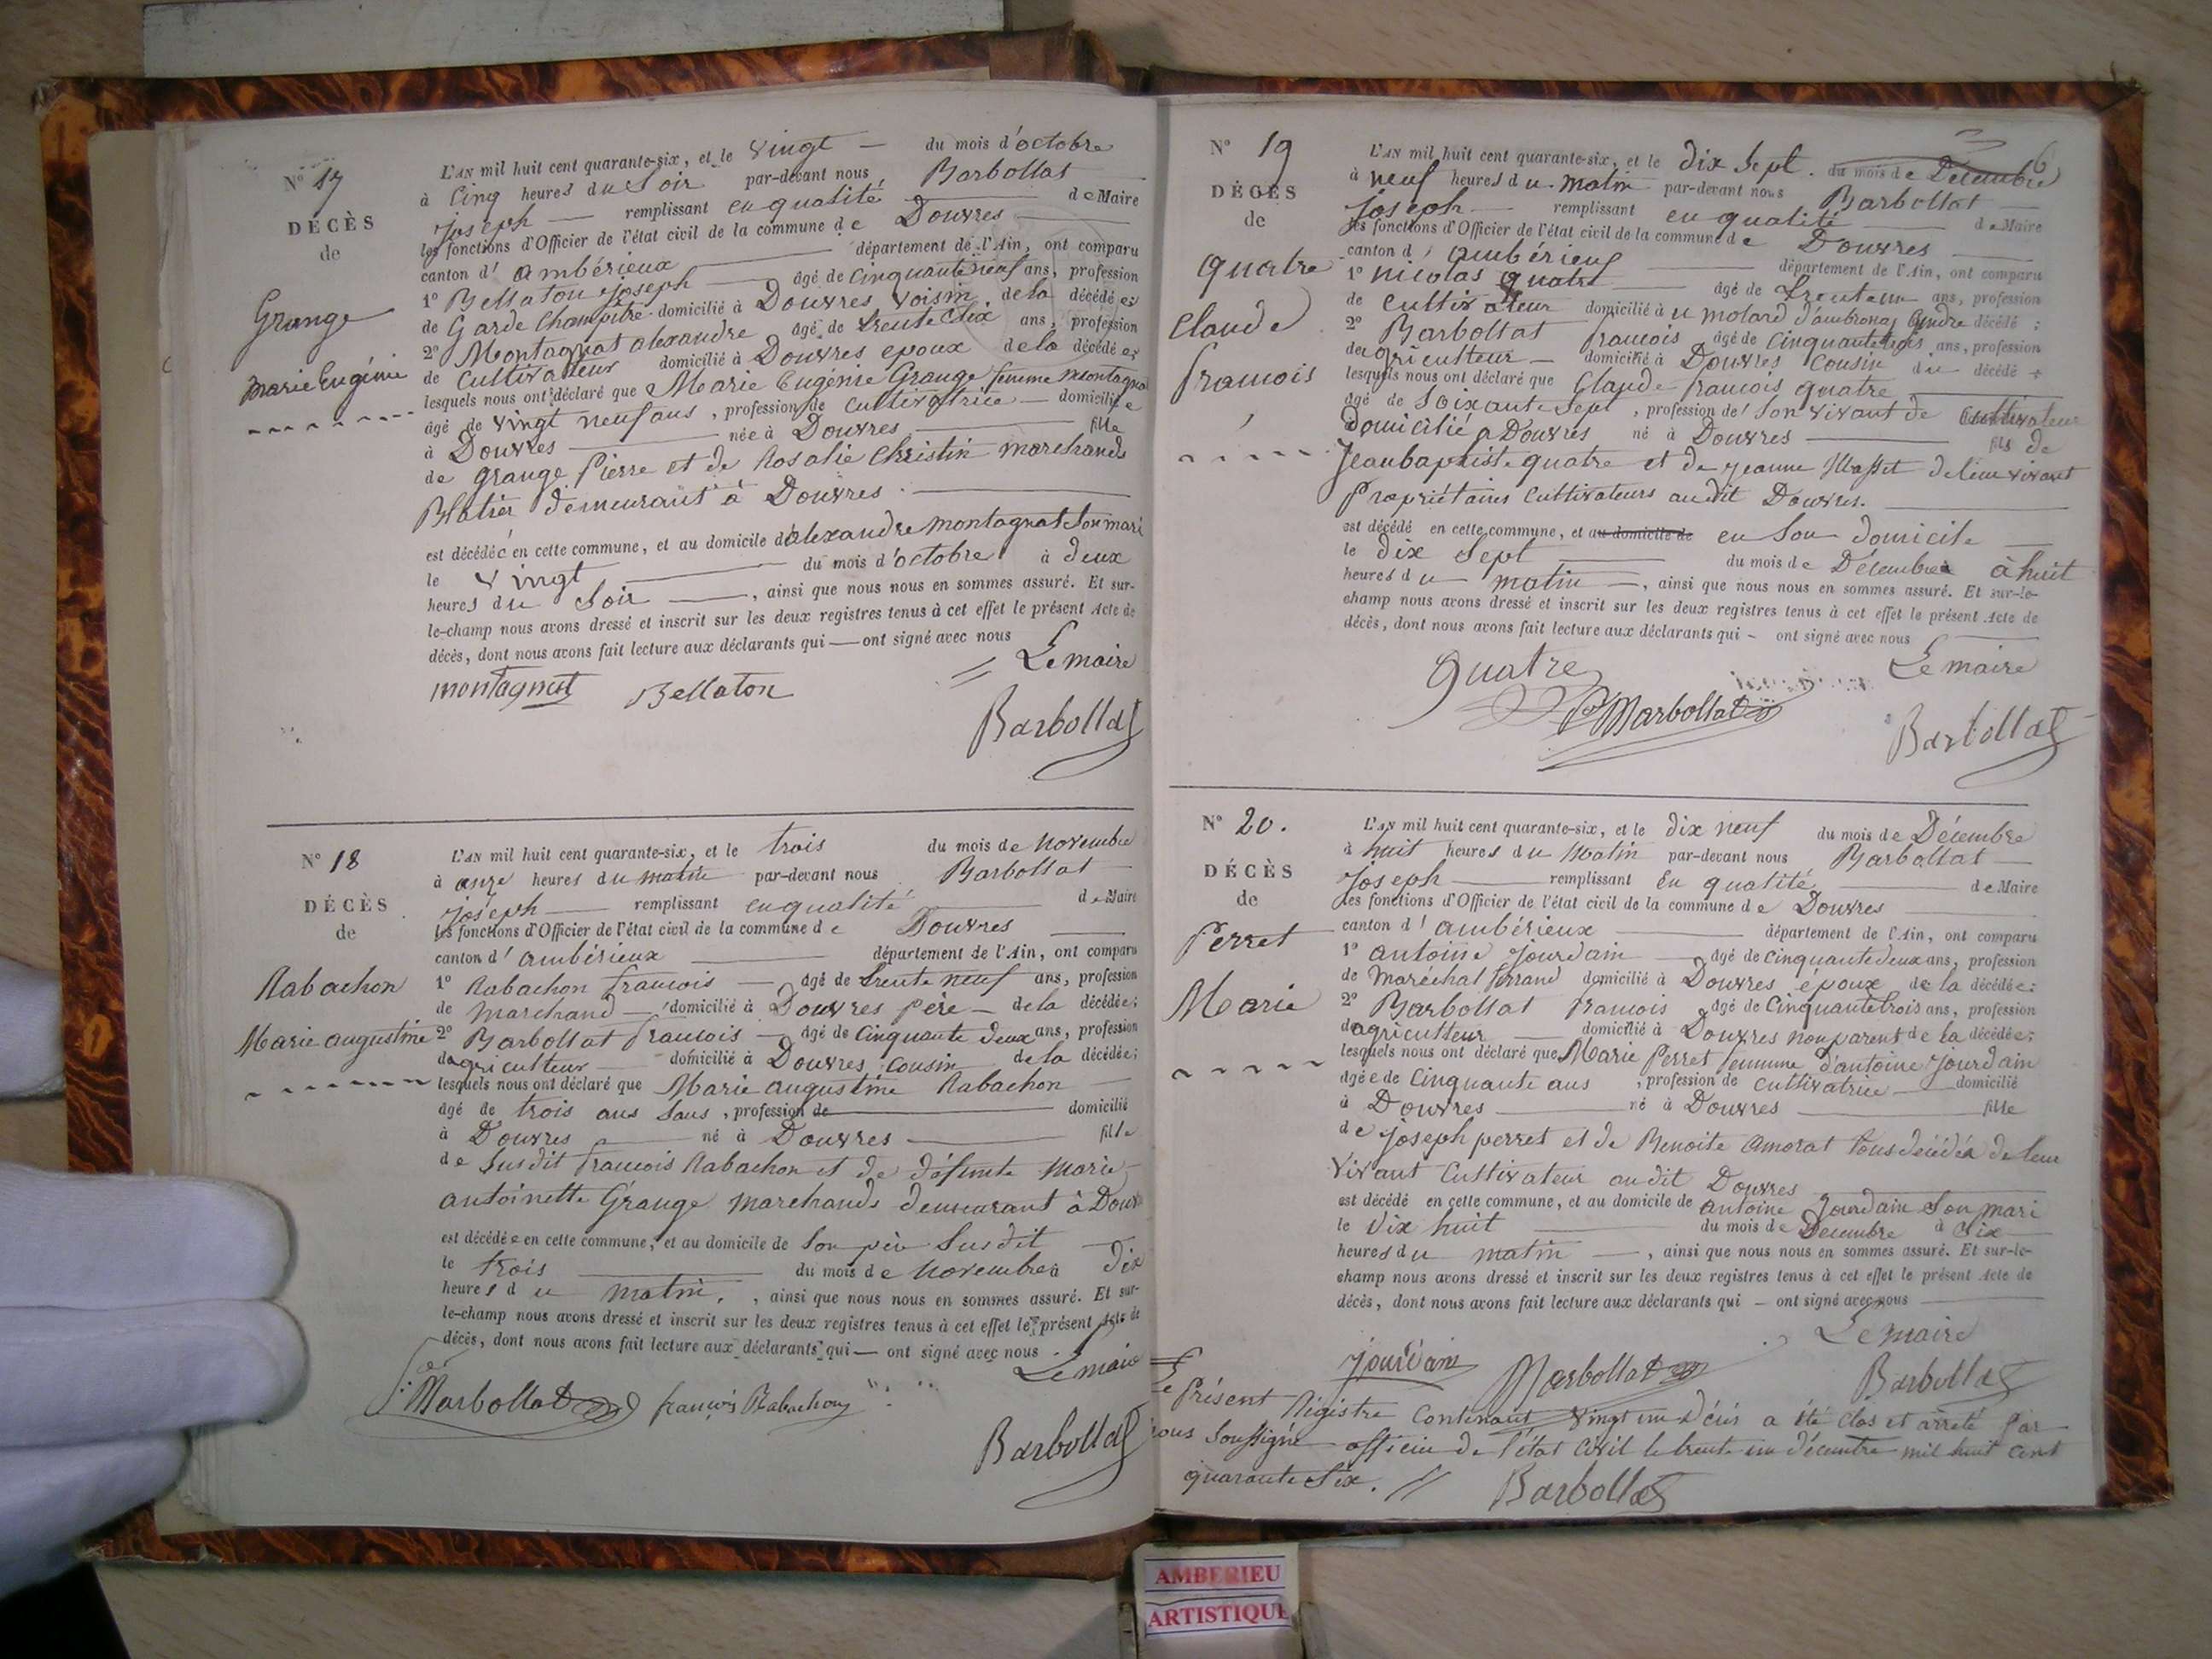 N° 17
DÉCÈS
de
Grange
Marie Eugénie
L'AN mil huit cent quarante-six, et le vingt — du mois d'octobre
à Cinq heures du Soir par-devant nous Barbollat
Joseph — remplissant en qualité — de Maire
les fonctions d'Officier de l'état civil de la commune de Douvres
canton d'ambérieux — département de l'Ain, ont comparu
1° Bellaton Joseph — âgé de Cinquante neuf ans, profession
de Garde Champêtre domicilié à Douvres voisin de la décédée;
2° Montagnat alexandre âgé de trente Six ans, profession
de Cultivateur domicilié à Douvres epoux de la décédée;
lesquels nous ont déclaré que Marie Eugénie Grange femme Montagnat
âgé de vingt neuf ans, profession de Cultivatrice — domiciliée
à Douvres — née à Douvres — fille
de Grange Pierre et de Rosalie Christin marchands
Blatier demeurant à Douvres.
est décédée en cette commune, et au domicile d'alexandre Montagnat Son mari
le vingt — du mois d'octobre à deux
heures du Soir —, ainsi que nous nous en sommes assuré. Et sur-
le-champ nous avons dressé et inscrit sur les deux registres tenus à cet effet le présent Acte de
décès, dont nous avons fait lecture aux déclarants qui — ont signé avec nous
Le maire
montagnat Bellaton
Barbollat
N° 18
DÉCÈS
de
Rabachon
Marie augustine
L'AN mil huit cent quarante-six, et le trois du mois de Novembre
à onze heures du matin par-devant nous Barbollat
Joseph — remplissant en qualité — de Maire
les fonctions d'Officier de l'état civil de la commune de Douvres
canton d'ambérieux — département de l'Ain, ont comparu
1° Rabachon francois — âgé de trente neuf ans, profession
de Marchand — domicilié à Douvres père — de la décédée;
2° Barbollat francois — âgé de Cinquante deux ans, profession
d'agriculteur — domicilié à Douvres cousin de la décédée;
lesquels nous ont déclaré que Marie augustine Rabachon
âgé de trois ans Sans, profession de — domicilié
à Douvres — né à Douvres — fille
de Susdit francois Rabachon et de défunte Marie
antoinette Grange Marchands demeurant à Douv
est décédée en cette commune, et au domicile de Son père Susdit
le trois — du mois de Novembre à dix
heures du matin, ainsi que nous nous en sommes assuré. Et sur-
le-champ nous avons dressé et inscrit sur les deux registres tenus à cet effet le présent Acte de
décès, dont nous avons fait lecture aux déclarants qui — ont signé avec nous
Le maire
Barbollat françois Rabachon
Barbollat
6
N° 19
DÉCÈS
de
quatre
Claude
francois
L'AN mil huit cent quarante-six, et le dix Sept. du mois de Décembre
à neuf heures du matin par-devant nous Barbollat
Joseph — remplissant en qualité — de Maire
les fonctions d'Officier de l'état civil de la commune de Douvres
canton d'ambérieux — département de l'Ain, ont comparu
1° nicolas quatre — âgé de trente un ans, profession
de Cultivateur domicilié à u molard d'ambronay Gendre décédé;
2° Barbollat francois âgé de Cinquante trois ans, profession
d'agriculteur — domicilié à Douvres Cousin du décédé
lesquels nous ont déclaré que Claude francois quatre
âgé de Soixante Sept, profession de Son vivant de Cultivateur
domicilié a Douvres né à Douvres — fils de
Jean baptiste quatre et de jeanne Masset de leur vivant
Propriétaires Cultivateurs audit Douvres.
est décédé en cette commune, et au domicile de en Son domicile
le dix Sept — du mois de Décembre à huit
heures du matin —, ainsi que nous nous en sommes assuré. Et sur-le-
champ nous avons dressé et inscrit sur les deux registres tenus à cet effet le présent Acte de
décès, dont nous avons fait lecture aux déclarants qui — ont signé avec nous
Le maire
Quatre
Barbollat
Barbollat
N° 20.
DÉCÈS
de
Perret
Marie
L'AN mil huit cent quarante-six, et le dix neuf du mois de Décembre
à huit heures du Matin par-devant nous Barbollat
Joseph — remplissant En qualité — de Maire
les fonctions d'Officier de l'état civil de la commune de Douvres
canton d'ambérieux — département de l'Ain, ont comparu
1° antoine Jourdain — âgé de cinquante deux ans, profession
de Maréchal ferrand domicilié à Douvres époux de la décédée;
2° Barbollat francois âgé de Cinquante trois ans, profession
d'agriculteur — domicilié à Douvres non parent de la décédée;
lesquels nous ont déclaré que Marie Perret femme d'antoine Jourdain
âgée de Cinquante ans, profession de cultivatrice — domicilié
à Douvres — né à Douvres — fille
de joseph perret et de Benoite amorat tous décédés de leur
vivant Cultivateur audit Douvres
est décédé en cette commune, et au domicile de antoine Jourdain Son mari
le dix huit — du mois de Décembre à Six
heures du matin —, ainsi que nous nous en sommes assuré. Et sur-le-
champ nous avons dressé et inscrit sur les deux registres tenus à cet effet le présent Acte de
décès, dont nous avons fait lecture aux déclarants qui — ont signé avec nous
Le maire
jourdain Barbollat Barbollat
Le Présent Régistre Contenant vingt un décès a été Clos et arreté Par
nous Soussigné officier de l'état civil le trente un décembre mil huit cent
quarante Six. // Barbollat
AMBERIEU
ARTISTIQUE